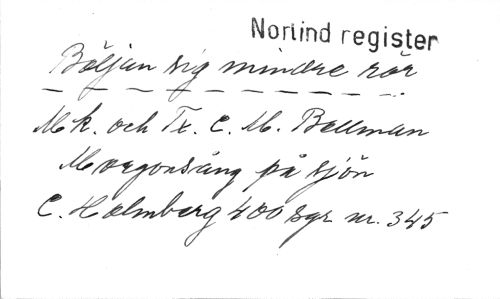 Norlind register
Böljan sig mindre rör
Mk. och Tx. C. M. Bellman
Morgonsång på sjön
C. Holmberg 400 sgr nr. 345